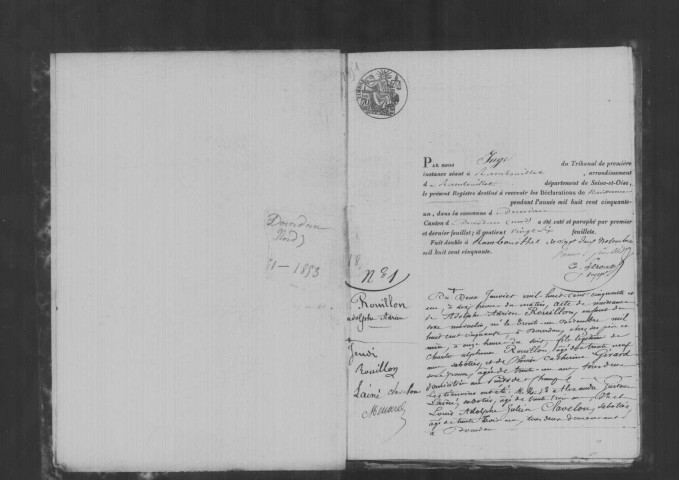 Dourdan
Nord
51 — 1853
PAR NOUS Juge du Tribunal de première
instance séant à Rambouillet, arrondissement
d Rambouillet département de Seine-et-Oise,
le présent Registre destiné à recevoir les Déclarations de Naissance
pendant l'année mil huit cent cinquante-
un, dans la commune d Dourdan
Canton d Dourdan (nord) a été coté et paraphé par premier
et dernier feuillet; il contient vingt six feuillets.
Fait double à Rambouillet, le vingt deux Novembre
mil huit cent cinquante.
N° 1
Rouillon
adolphe Adrien
Jeudi
Rouillon
Lainé clavelon
Du deux Janvier mil huit cent cinquante et
un, à dix heures du matin, acte de naissance
de Adolphe Adrien Rouillon, enfant du
sexe masculin, né le trente-un Décembre mil
huit cent cinquante, à Dourdan, chez ses père et
mère, à onze heures du soir, fils légitime de
Charles alphonse Rouillon, âgé de trente neuf
ans, sabotier, et de Catherine Girard
son épouse, âgée de trente-un ans, tous deux
Les témoins ont été M. Alexandre Gustave
Lainé, sabotier, âgé de vingt trois ans
Louis Adolphe Julien Clavelon, sabotier,
âgé de trente trois ans, tous deux demeurant
à Dourdan